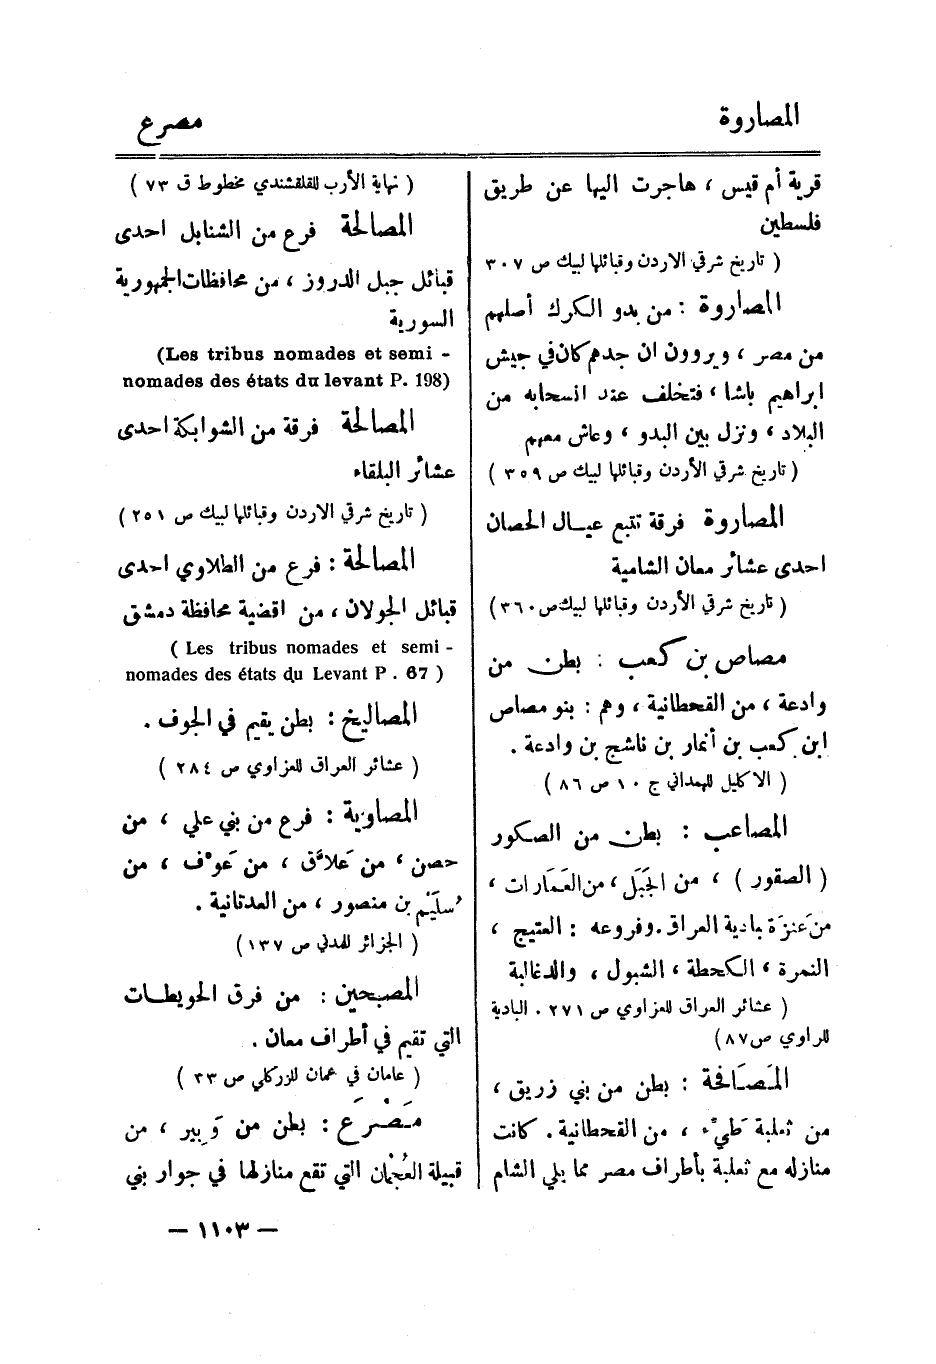 المصاروة
مصرع
قرية أم قيس ، هاجرت اليها عن طريق
فلسطين
( تاريخ شرقي الاردن وقبائلها لبيك ص ٣٠٧
المصاروة : من بدو الكرك أصلهم
من مصر ، ويروون ان جدهم كان في جيش
ابراهيم باشا ، فتخلف عند انسحابه من
البلاد ، ونزل بين البدو ، وعاش معهم
( تاريخ شرقي الأردن وقبائلها لبيك ص ٣٥٩ )
المصاروة فرقة تتبع عيال الحصان
احدى عشائر معان الشامية
( تاريخ شرقي الأردن وقبائلها لبيك ص ٣٦٠)
مصاص بن كعب : بطن من
وادعة ، من القحطانية ، وهم : بنو مصاص
ابن كعب بن أنمار بن ناشج بن وادعة .
( الاكليل للهمداني ج ١٠ ص ٨٦ )
المصاعب : بطن من الصكور
( الصقور ) ، من الجَبَل ، من العَمَارات ،
من عَنزَة ببادية العراق . وفروعه : العتيج ،
النمرة ، الكحطة ، الشبول ، والدغالبة
( عشائر العراق للعزاوي ص ٢٧١ . البادية
للراوي ص ٨٧)
المَصَافحة : بطن من بني زريق ،
من ثعلبة طَيء ، من القحطانية . كانت
منازله مع ثعلبة بأطراف مصر مما يلي الشام
( نهاية الأرب للقلقشندي مخطوط ق ٧٣ )
المصالحة فرع من الشنابل احدى
قبائل جبل الدروز ، من محافظات الجمهورية
السورية
(Les tribus nomades et semi -
nomades des états du levant P. 198)
المصالحة فرقة من الشوابكة احدى
عشائر البلقاء
( تاريخ شرقي الاردن وقبائلها لبيك ص ٢٥١ )
المصالحة : فرع من الطلاوي احدى
قبائل الجولان ، من اقضية محافظة دمشق
( Les tribus nomades et semi -
nomades des états du Levant P . 67 )
المصاليخ : بطن يقيم في الجوف .
( عشائر العراق للعزاوي ص ٢٨٤ )
المصاوبة : فرع من بني علي ، من
حصن ، من عَلاَّق ، من عَوْف ، من
سُلَيْم بن منصور ، من العدنانية .
( الجزائر للمدني ص ١٣٧)
المصبحين : من فرق الحويطات
التي تقيم في أطراف معان .
( عامان في عمان للزركلي ص ٢٣ )
مَصْرَع : بطن من وَبير ، من
قبيلة العُجْمان التي تقع منازلها في جوار بني
— ١١٠٣ —